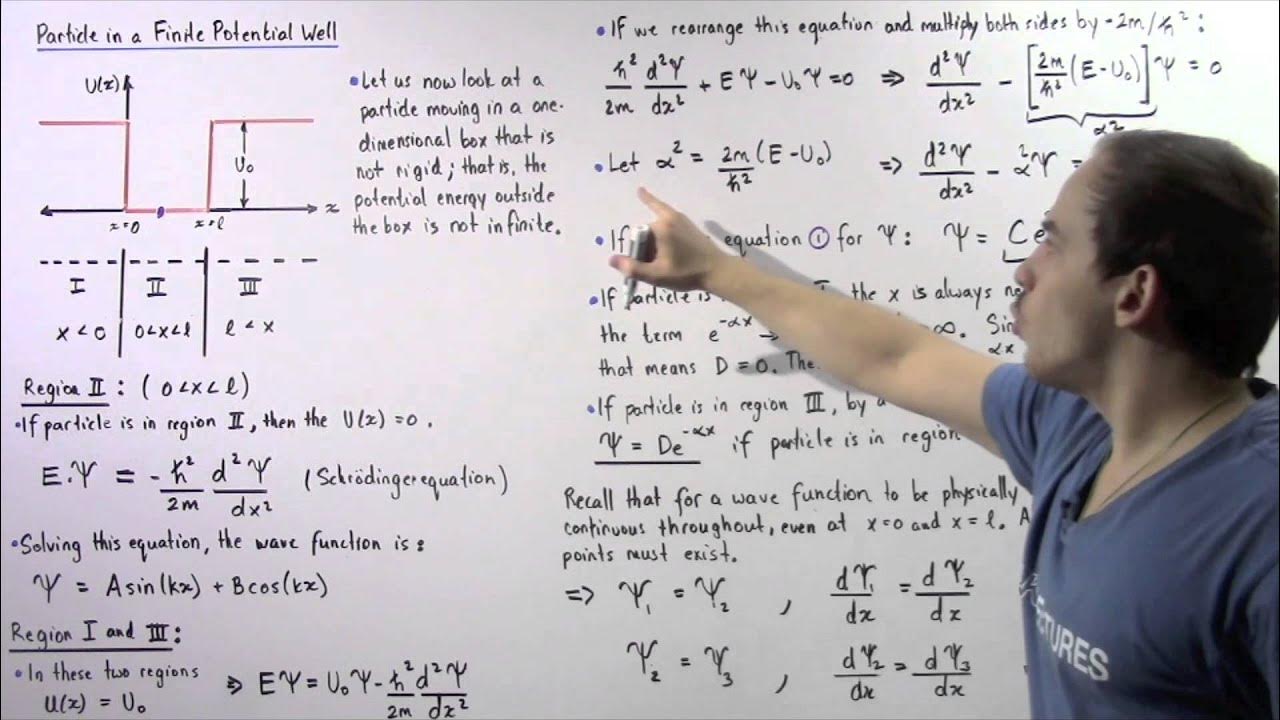 Particle in a Finite Potential Well
U(x)
U₀
x
x=0
x=l
I II III
x<0 0<x<l l<x
• Let us now look at a
particle moving in a one-
dimensional box that is
not rigid; that is, the
potential energy outside
the box is not infinite.
Region II: (0<x<l)
• If particle is in region II, then the U(x)=0.
E.Ψ = -ℏ²/2m d²Ψ/dx² (Schrödinger equation)
• Solving this equation, the wave function is:
Ψ = Asin(kx) + Bcos(kx)
Region I and III:
• In these two regions
U(x) = U₀
⇒ EΨ = U₀Ψ - ℏ²/2m d²Ψ/dx²
• If we rearrange this equation and multiply both sides by -2m/ℏ²:
ℏ²/2m d²Ψ/dx² + EΨ - U₀Ψ = 0 ⇒ d²Ψ/dx² - [2m/ℏ² (E-U₀)]Ψ = 0
α²
• Let α² = 2m/ℏ² (E-U₀) ⇒ d²Ψ/dx² - α²Ψ =
• If equation ① for Ψ: Ψ = Ce
• If particle is I the x is always
the term e^-αx → ∞.
that means D = 0.
αx
• If particle is in region III, by a
Ψ = De^-αx if particle is in region
Recall that for a wave function to be physically
continuous throughout, even at x=0 and x=l.
points must exist.
⇒ Ψ₁ = Ψ₂ , dΨ₁/dx = dΨ₂/dx
Ψ₂ = Ψ₃ , dΨ₂/dx = dΨ₃/dx